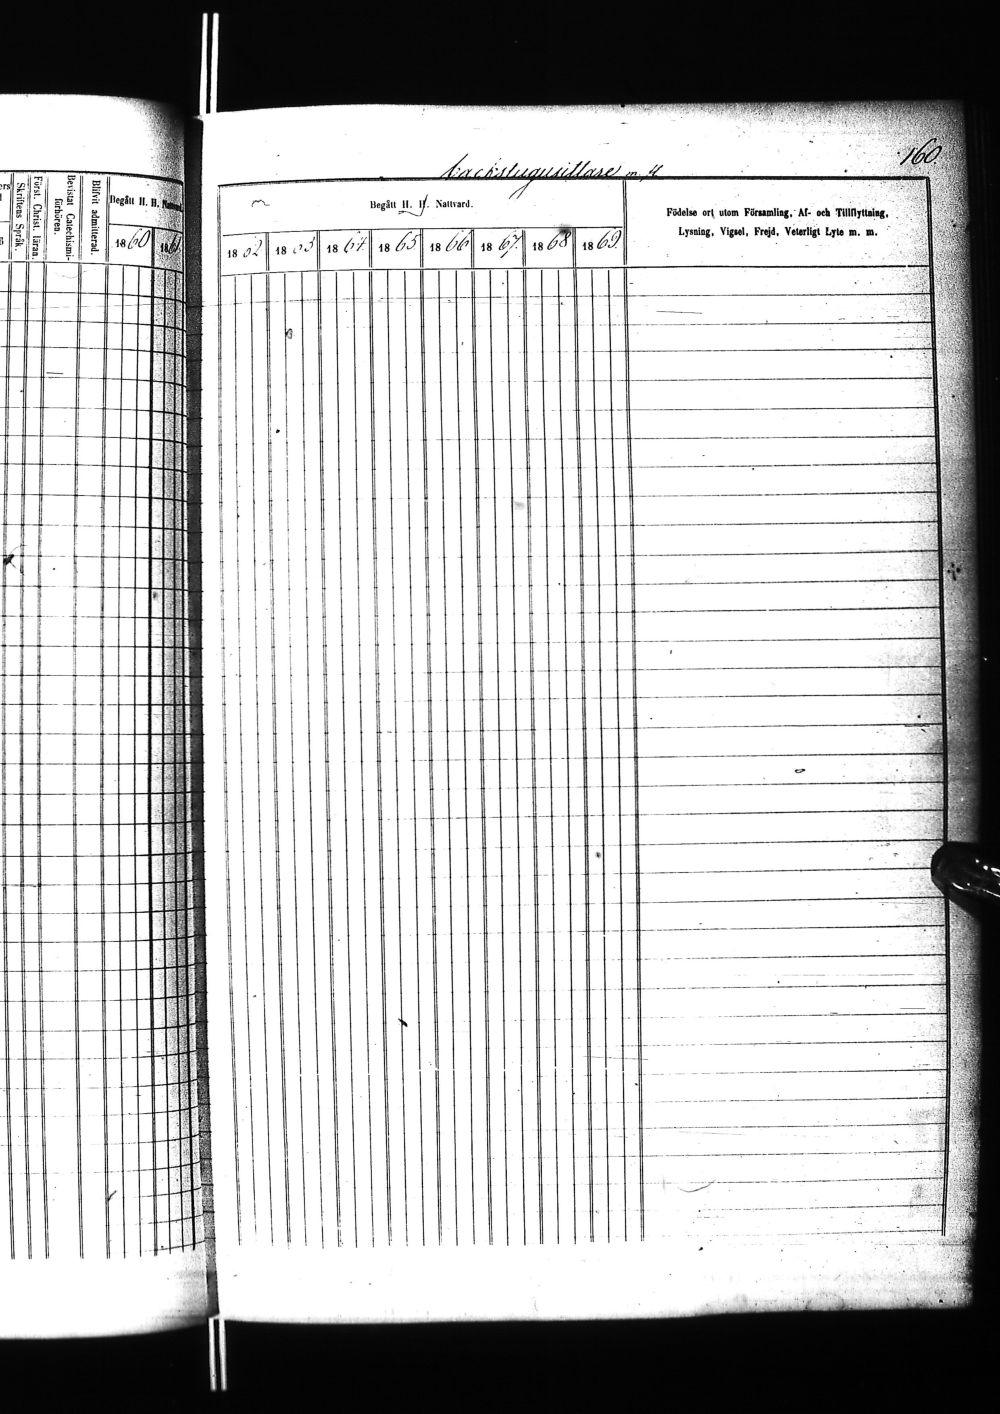 160
backstugusittare m. fl
Skriftens Språk.
Först. Christ. läran.
Bevistat Catechismi-
förhören.
Blifvit admitterad.
Begått H. H. Nattvard.
1860
Begått H. H. Nattvard.
1862 1863 1864 1865 1866 1867 1868 1869
Födelse ort utom Församling, Af- och Tillflyttning,
Lysning, Vigsel, Frejd, Veterligt Lyte m. m.